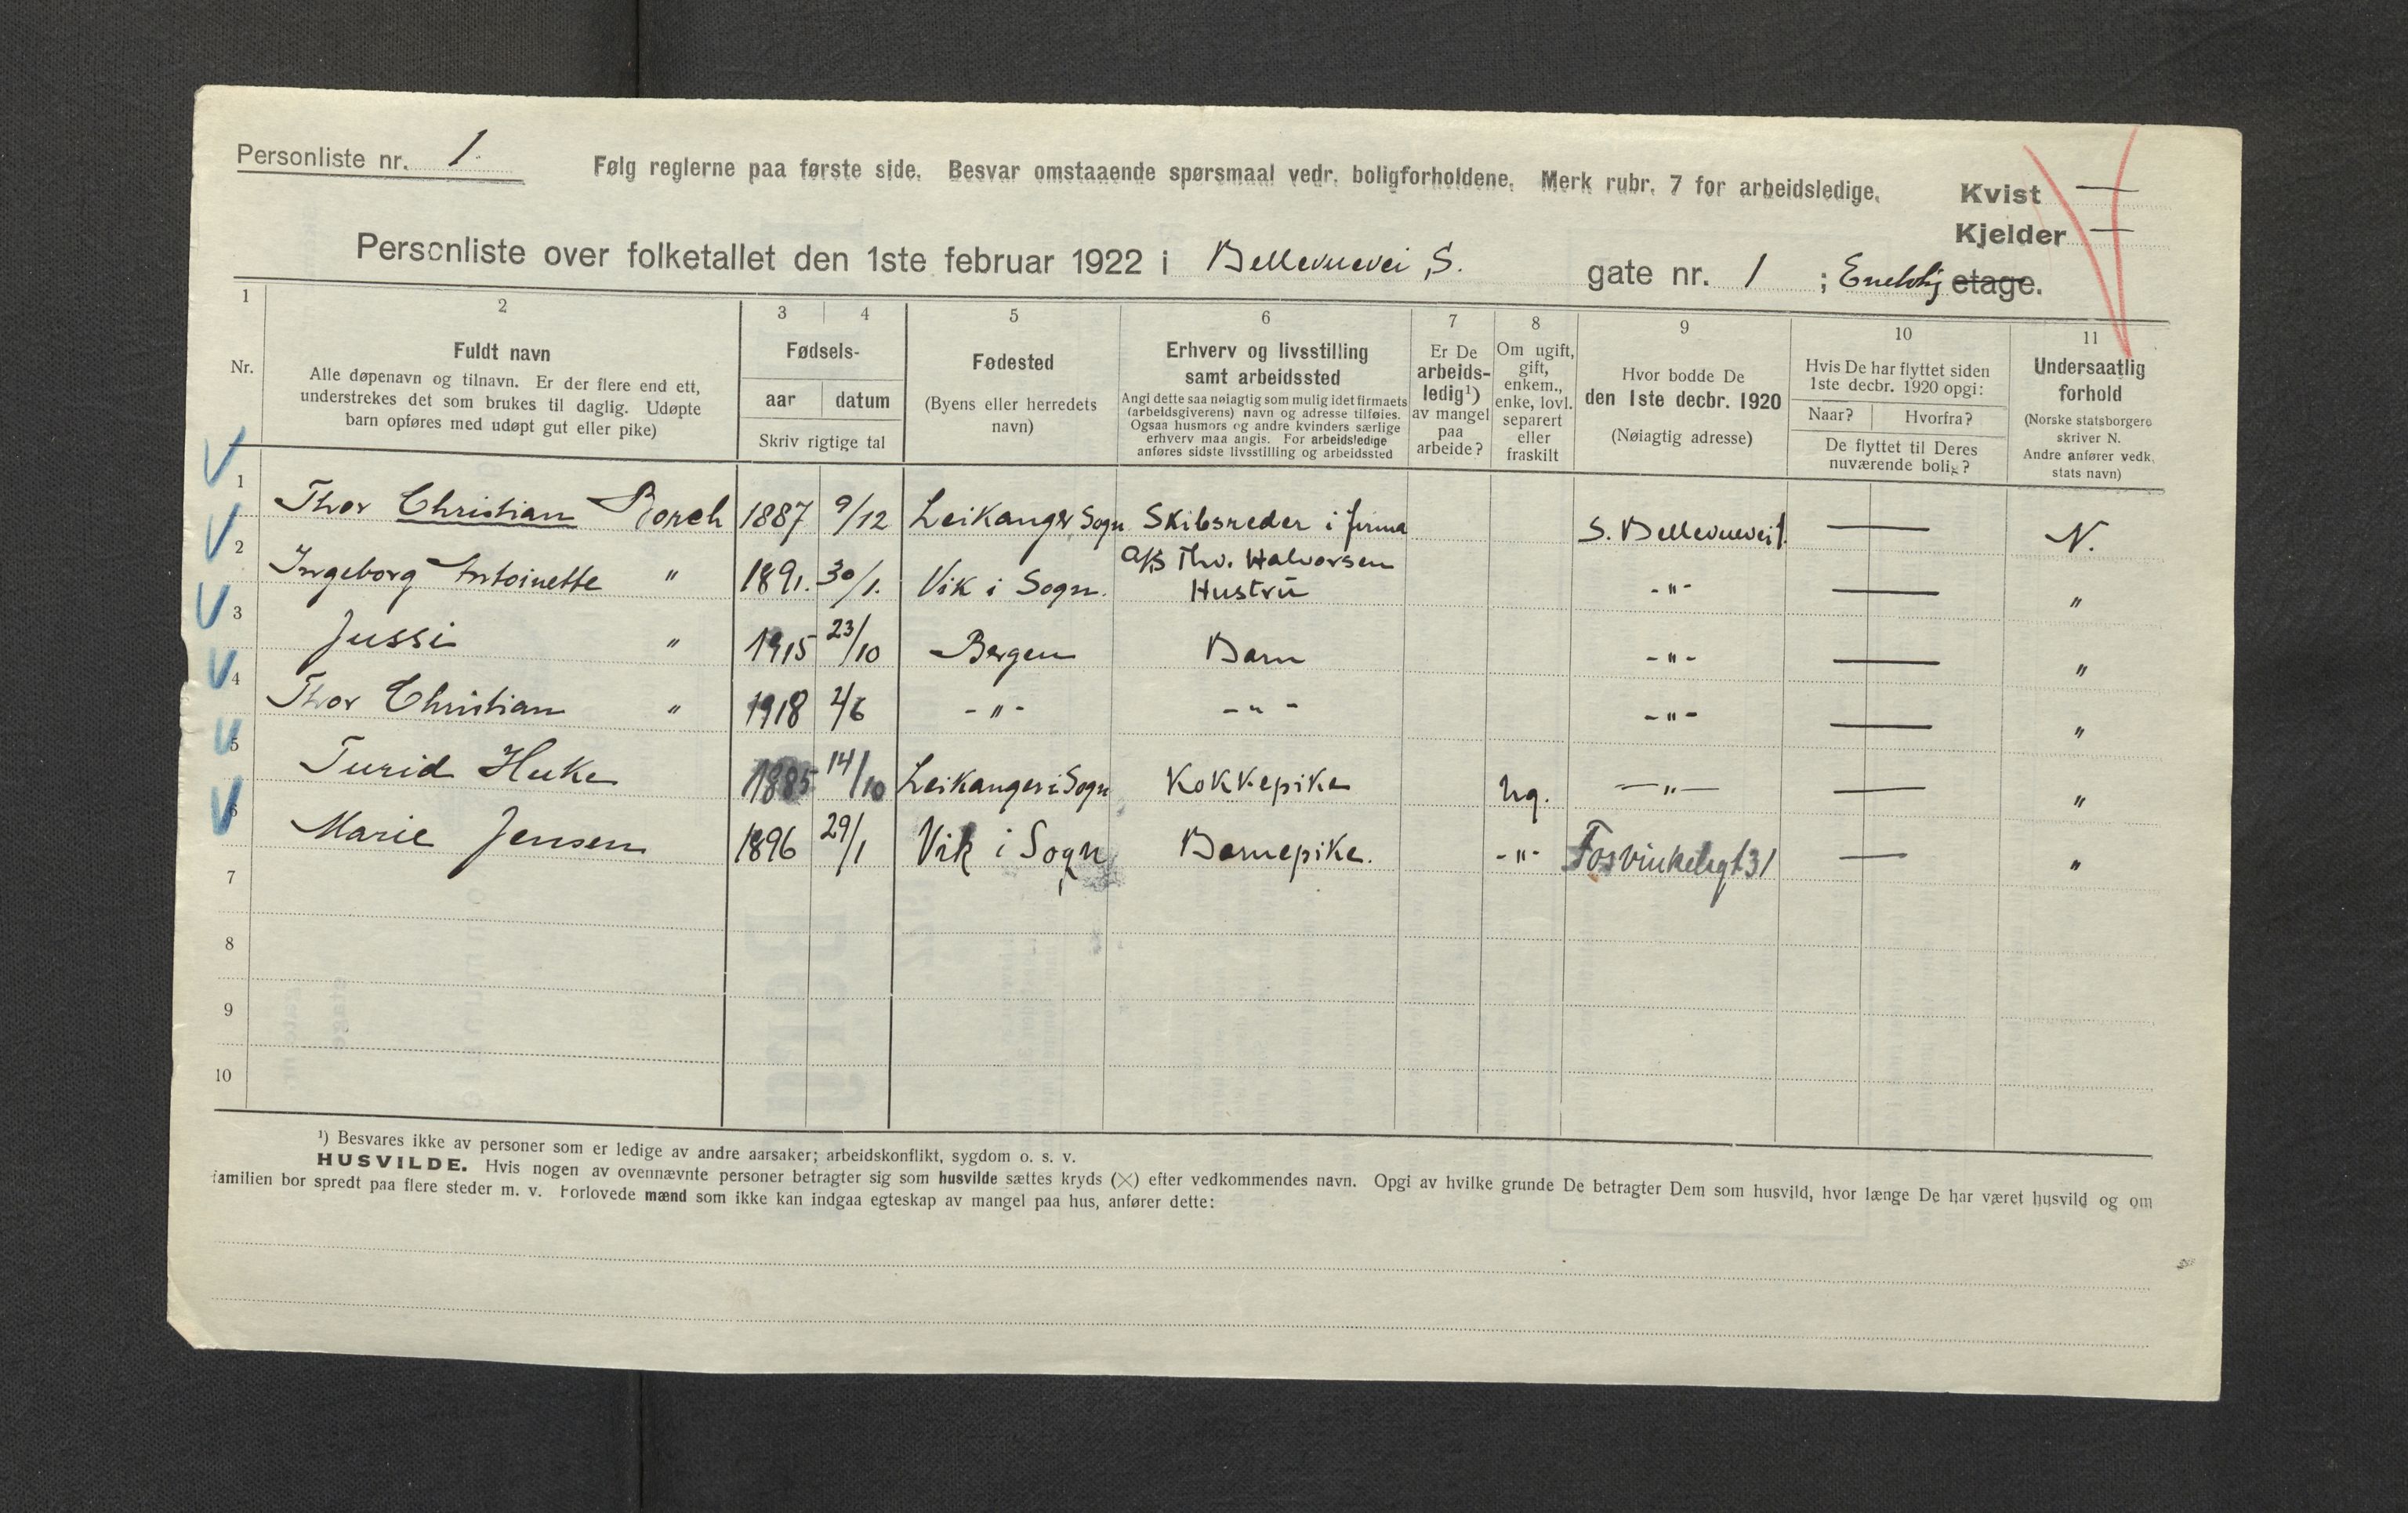 Personliste nr. 1.
Følg reglerne paa første side. Besvar omstaaende spørsmaal vedr. boligforholdene. Merk rubr. 7 for arbeidsledige.
Kvist —
Kjelder —
Personliste over folketallet den 1ste februar 1922 i Bellevuevei, S. gate nr. 1 ; etage.
1 2 3 4 5 6 7 8 9 10 11
Nr.
Fuldt navn
Alle døpenavn og tilnavn. Er der flere end ett,
understrekes det som brukes til daglig. Udøpte
barn opføres med udøpt gut eller pike)
Fødsels-
aar datum
Skriv rigtige tal
Fødested
(Byens eller herredets
navn)
Erhverv og livsstilling
samt arbeidssted
Angi dette saa nøiagtig som mulig idet firmaets
(arbeidsgiverens) navn og adresse tilføies.
Ogsaa husmors og andre kvinders særlige
erhverv maa angis. For arbeidsledige
anføres sidste livsstilling og arbeidssted
Er De
arbeids-
ledig¹)
av mangel
paa
arbeide?
Om ugift,
gift,
enkem.,
enke, lovl.
separert
eller
fraskilt
Hvor bodde De
den 1ste decbr. 1920
(Nøiagtig adresse)
Hvis De har flyttet siden
1ste decbr. 1920 opgi:
Naar? Hvorfra?
De flyttet til Deres
nuværende bolig?
Undersaatlig
forhold
(Norske statsborgere
skriver N.
Andre anfører vedk.
stats navn)
1 Thor Christian Borch 1887 9/12 Leikanger Sogn Skibsreder i firma S. Bellevuevei 1. — N.
A/S Thv. Halvorsen
2 Ingeborg Antoinette " 1891. 30/1. Vik i Sogn. Hustru -"- — "
3 Jussi " 1915 23/10 Bergen Barn -"- — "
4 Thor Christian " 1918 2/6 -"- -"- -"- — "
5 Turid Huke 1885 14/10 Leikanger i Sogn Kokkepike ug. —"— — "
6 Marie Jensen 1896 29/1 Vik i Sogn Barnepike. -"- Fosvinkelsgt 31 — "
7
8
9
10
¹) Besvares ikke av personer som er ledige av andre aarsaker; arbeidskonflikt, sygdom o. s. v.
HUSVILDE. Hvis nogen av ovennævnte personer betragter sig som husvilde sættes kryds (×) efter vedkommendes navn. Opgi av hvilke grunde De betragter Dem som husvild, hvor længe De har været husvild og om
familien bor spredt paa flere steder m. v. Forlovede mænd som ikke kan indgaa egteskap av mangel paa hus, anfører dette: